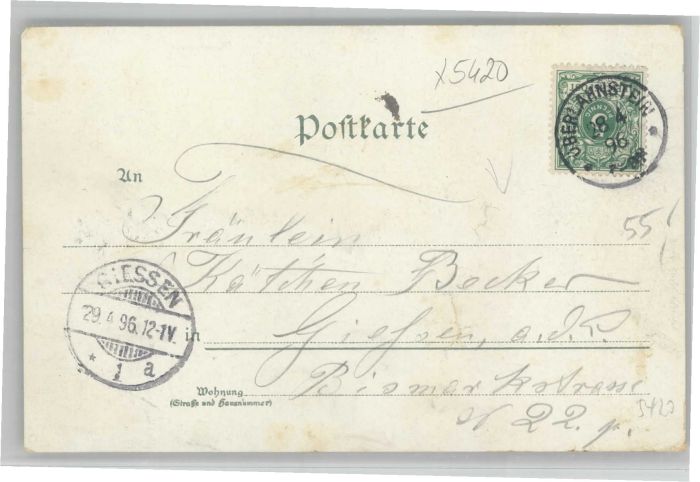 x5420
OBERLAHNSTEIN
4
96
Postkarte
An
55
Fräulein
Kätchen Becker
GIESSEN
29.4.96.12-1V.
* 1 a
in Gießen, a. d. L.
Wohnung
(Straße und Hausnummer)
Bismarkstrasse
N 22 p.
5420